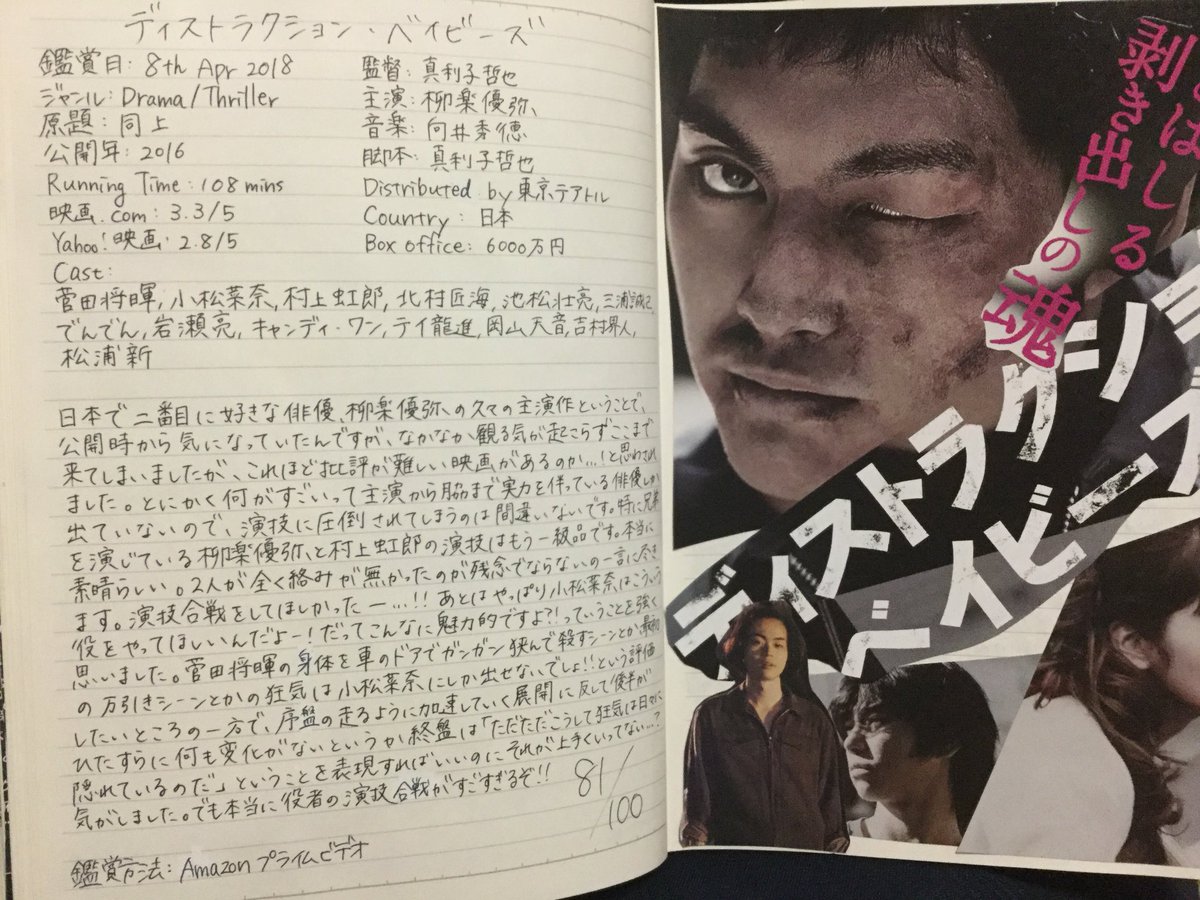 ディストラクション・ベイビーズ
鑑賞日: 8th Apr 2018
ジャンル: Drama/Thriller
原題: 同上
公開年: 2016
Running Time: 108 mins
映画.com: 3.3/5
Yahoo!映画: 2.8/5
監督: 真利子哲也
主演: 柳楽優弥
音楽: 向井秀徳
脚本: 真利子哲也
Distributed by 東京テアトル
Country: 日本
Box office: 6000万円
Cast:
菅田将暉, 小松菜奈, 村上虹郎, 北村匠海, 池松壮亮, 三浦誠己
でんでん, 岩瀬亮, キャンディ・ワン, テイ龍進, 岡山天音, 吉村界人,
松浦新
日本で二番目に好きな俳優、柳楽優弥の久々の主演作ということで、
公開時から気になっていたんですが、なかなか観る気が起こらずここまで
来てしまいましたが、これほど批評が難しい映画があるのか…!と思わされ
ました。とにかく何がすごいって主演から脇まで実力を伴っている俳優しか
出ていないので、演技に圧倒されてしまうのは間違いないです。特に兄弟
を演じている柳楽優弥と村上虹郎の演技はもう一級品です。本当に
素晴らしい。2人が全く絡みが無かったのが残念でならないの一言に尽き
ます。演技合戦をしてほしかったー…!!あとはやっぱり小松菜奈はこういう
役をやってほしいんだよー!だってこんなに魅力的ですよ?!っていうことを強く
思いました。菅田将暉の身体を車のドアでガンガン挟んで殺すシーンとか最初
の万引きシーンとかの狂気は小松菜奈にしか出せないでしょ!!という評価
したいところの一方で、序盤の走るように加速していく展開に反して後半が
ひたすらに何も変化がないというか終盤は「ただただこうして狂気は日々に
隠れているのだ」ということを表現すればいいのにそれが上手くいってない…?
気がしました。でも本当に役者の演技合戦がすごすぎるぞ!!
81/100
鑑賞方法: Amazonプライムビデオ
とばしる
剥き出しの魂
ディストラクショ
ベイビーズ